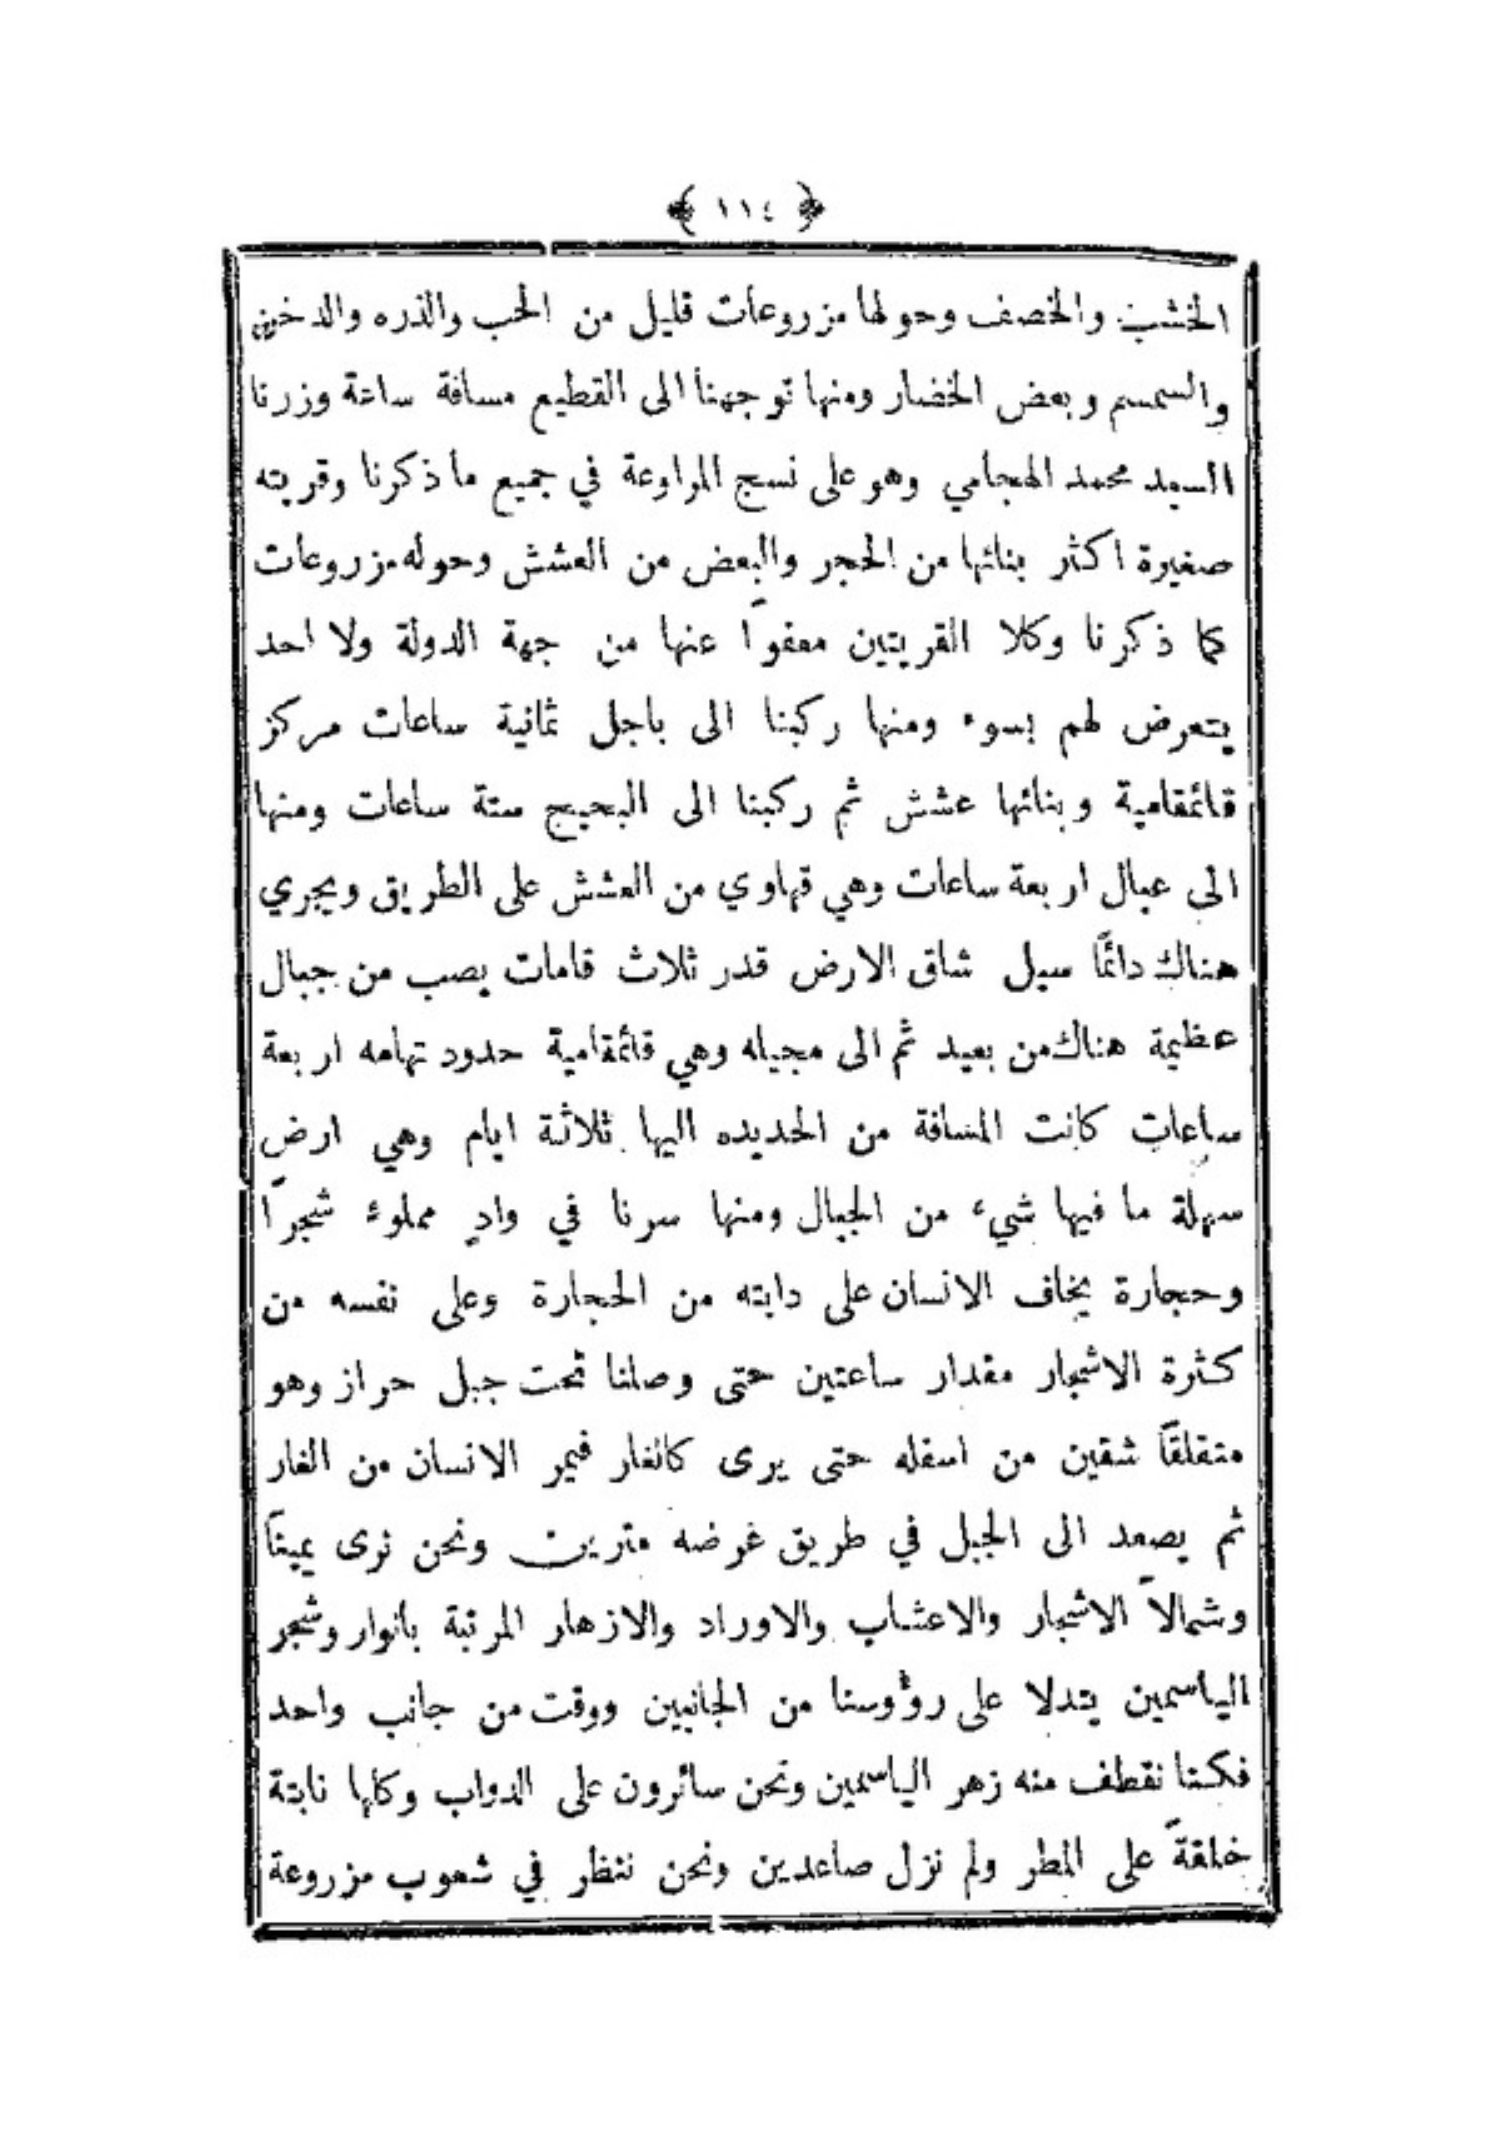 ﴿ ١١٤ ﴾
الخشب والخصف وحولها مزروعات قليل من الحب والذره والدخن
والسمسم وبعض الخضار ومنها توجهنا الى القطيع مسافة ساعة وزرنا
السيد محمد الهجامي وهو على نسج المراوعة في جميع ما ذكرنا وقريته
صغيرة اكثر بنائها من الحجر والبعض من العشش وحوله مزروعات
كما ذكرنا وكلا القريتين معفواً عنها من جهة الدولة ولا احد
يتعرض لهم بسوء ومنها ركبنا الى باجل ثمانية ساعات مركز
قائمقامية وبنائها عشش ثم ركبنا الى البحيح ستة ساعات ومنها
الى عبال اربعة ساعات وهي قهاوي من العشش على الطريق ويجري
هناك دائمًا سيل شاق الارض قدر ثلاث قامات يصب من جبال
عظيمة هناك من بعيد ثم الى مجيله وهي قائمقامية حدود تهامه اربعة
ساعات كانت المسافة من الحديده اليها ثلاثة ايام وهي ارض
سهلة ما فيها شيء من الجبال ومنها سرنا في وادٍ مملوء شجراً
وحجارة يخاف الانسان على دابته من الحجارة وعلى نفسه من
كثرة الاشجار مقدار ساعتين حتى وصلنا تحت جبل حراز وهو
متقلقاً شقين من اسفله حتى يرى كالغار فيمر الانسان من الغار
ثم يصعد الى الجبل في طريق عرضه مترين ونحن نرى يميناً
وشمالاً الاشجار والاعشاب والاوراد والازهار المرتبة بانوار وشجر
الياسمين يتدلا على رؤوسنا من الجانبين ووقت من جانب واحد
فكنا نقطف منه زهر الياسمين ونحن سائرون على الدواب وكلها نابتة
خلقةً على المطر ولم نزل صاعدين ونحن ننظر في شعوب مزروعة